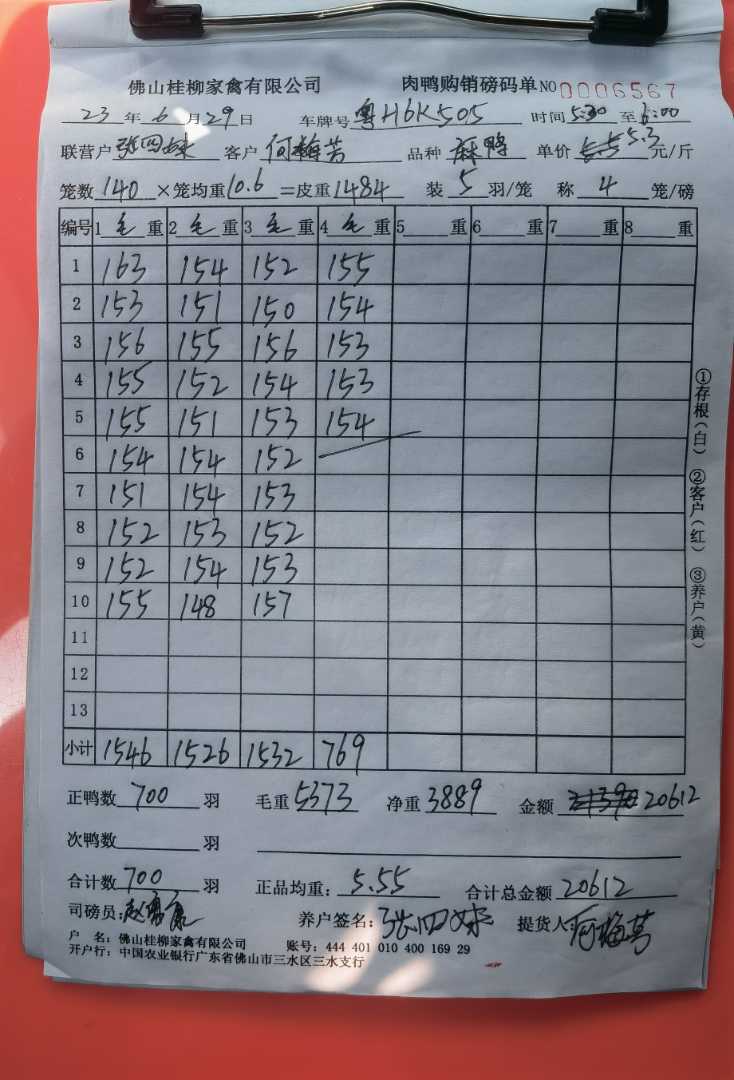 佛山桂柳家禽有限公司 肉鸭购销磅码单 NO 0006567
23 年 6 月 29 日 车牌号 粤H6K505 时间 5:30 至 6:00
联营户 张四妹 客户 何梅芳 品种 麻鸭 单价 5.5 5.3 元/斤
笼数 140 ×笼均重 10.6 =皮重 1484 装 5 羽/笼 称 4 笼/磅
编号 1 毛 重 2 毛 重 3 毛 重 4 毛 重 5 重 6 重 7 重 8 重
1 163 154 152 155
2 153 151 150 154
3 156 155 156 153
4 155 152 154 153
5 155 151 153 154
6 154 154 152
7 151 154 153
8 152 153 152
9 152 154 153
10 155 148 157
11
12
13
小计 1546 1526 1532 769
正鸭数 700 羽 毛重 5373 净重 3889 金额 20612
次鸭数 羽
合计数 700 羽 正品均重: 5.55 合计总金额 20612
司磅员: 养户签名: 张四妹 提货人: 何梅芳
户 名: 佛山桂柳家禽有限公司 账号: 444 401 010 400 169 29
开户行: 中国农业银行广东省佛山市三水区三水支行
①存根(白) ②客户(红) ③养户(黄)